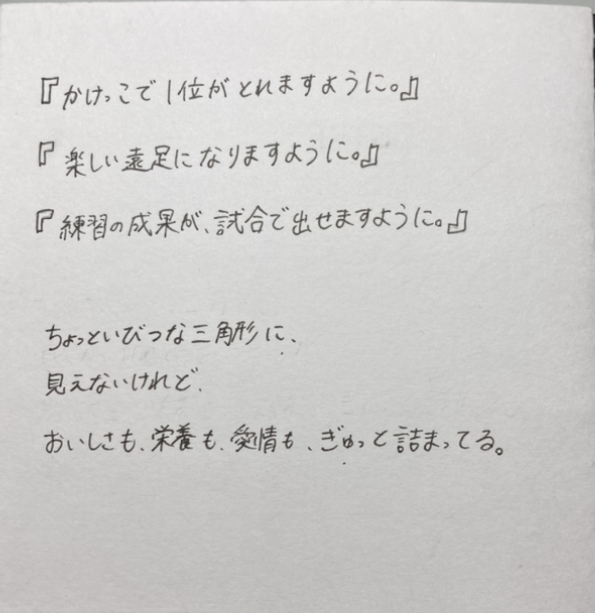 『かけっこで1位がとれますように。』
『楽しい遠足になりますように。』
『練習の成果が、試合で出せますように。』
ちょっといびつな三角形に、
見えないけれど、
おいしさも、栄養も、愛情も、ぎゅっと詰まってる。